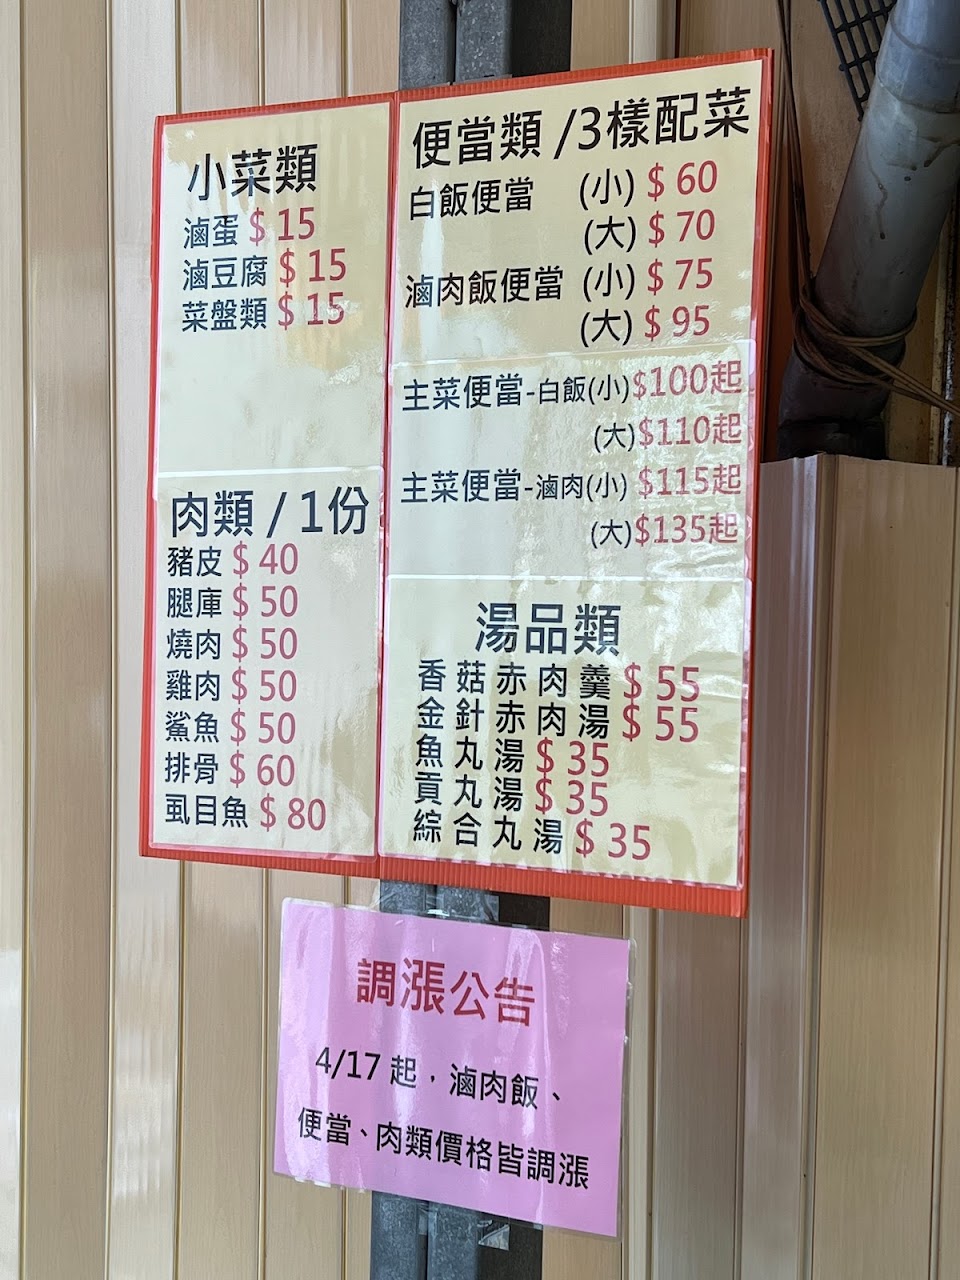 小菜類
滷蛋 $ 15
滷豆腐 $ 15
菜盤類 $ 15
肉類 / 1份
豬皮 $ 40
腿庫 $ 50
燒肉 $ 50
雞肉 $ 50
鯊魚 $ 50
排骨 $ 60
虱目魚 $ 80
便當類 /3樣配菜
白飯便當 (小) $ 60
(大) $ 70
滷肉飯便當 (小) $ 75
(大) $ 95
主菜便當-白飯(小)$100起
(大)$110起
主菜便當-滷肉(小) $115起
(大)$135起
湯品類
香菇赤肉羹 $ 55
金針赤肉湯 $ 55
魚丸湯 $ 35
貢丸湯 $ 35
綜合丸湯 $ 35
調漲公告
4/17 起，滷肉飯、
便當、肉類價格皆調漲